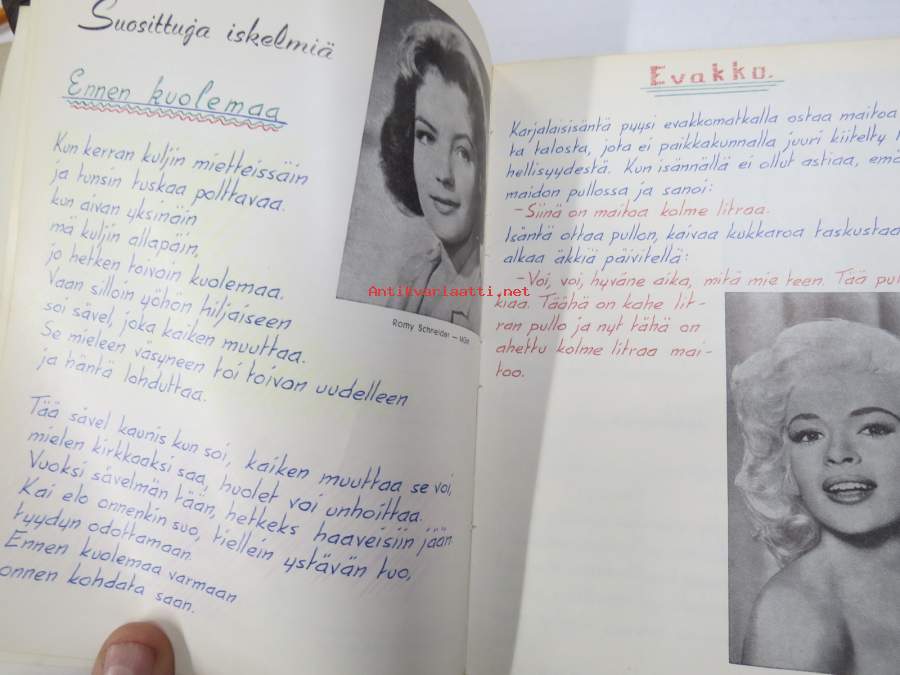 Suosittuja iskelmiä
Ennen kuolemaa
Kun kerran kuljin mietteissäin
ja tunsin tuskaa polttavaa.
kun aivan yksinäin
mä kuljin allapäin,
jo hetken toivoin kuolemaa.
Vaan silloin yöhön hiljaiseen
soi sävel, joka kaiken muuttaa.
Se mieleen väsyneen toi toivon uudelleen
ja häntä lohduttaa.
Tää sävel kaunis kun soi, kaiken muuttaa se voi,
mielen kirkkaaksi saa, huolet voi unhoittaa.
Vuoksi sävelmän tään, hetkeks haaveisiin jään
Kai elo onnenkin suo, tiellein ystävän tuo,
tyydyn odottamaan
Ennen kuolemaa varmaan
onnen kohdata saan.
Romy Schneider — MGM
Evakko.
Karjalaisisäntä pyysi evakkomatkalla ostaa maitoa
ta talosta, jota ei paikkakunnalla juuri kiitelty
hellisyydestä. Kun isännällä ei ollut astiaa, emä
maidon pullossa ja sanoi:
- Siinä on maitoa kolme litraa.
Isäntä ottaa pullon, kaivaa kukkaroa taskustaa
alkaa äkkiä päivitellä:
- Voi, voi, hyväne aika, mitä mie teen. Tää pul
kiaa. Täähä on kahe lit-
ran pullo ja nyt tähä on
ahettu kolme litraa mai-
too.
Antikvariaatti.net